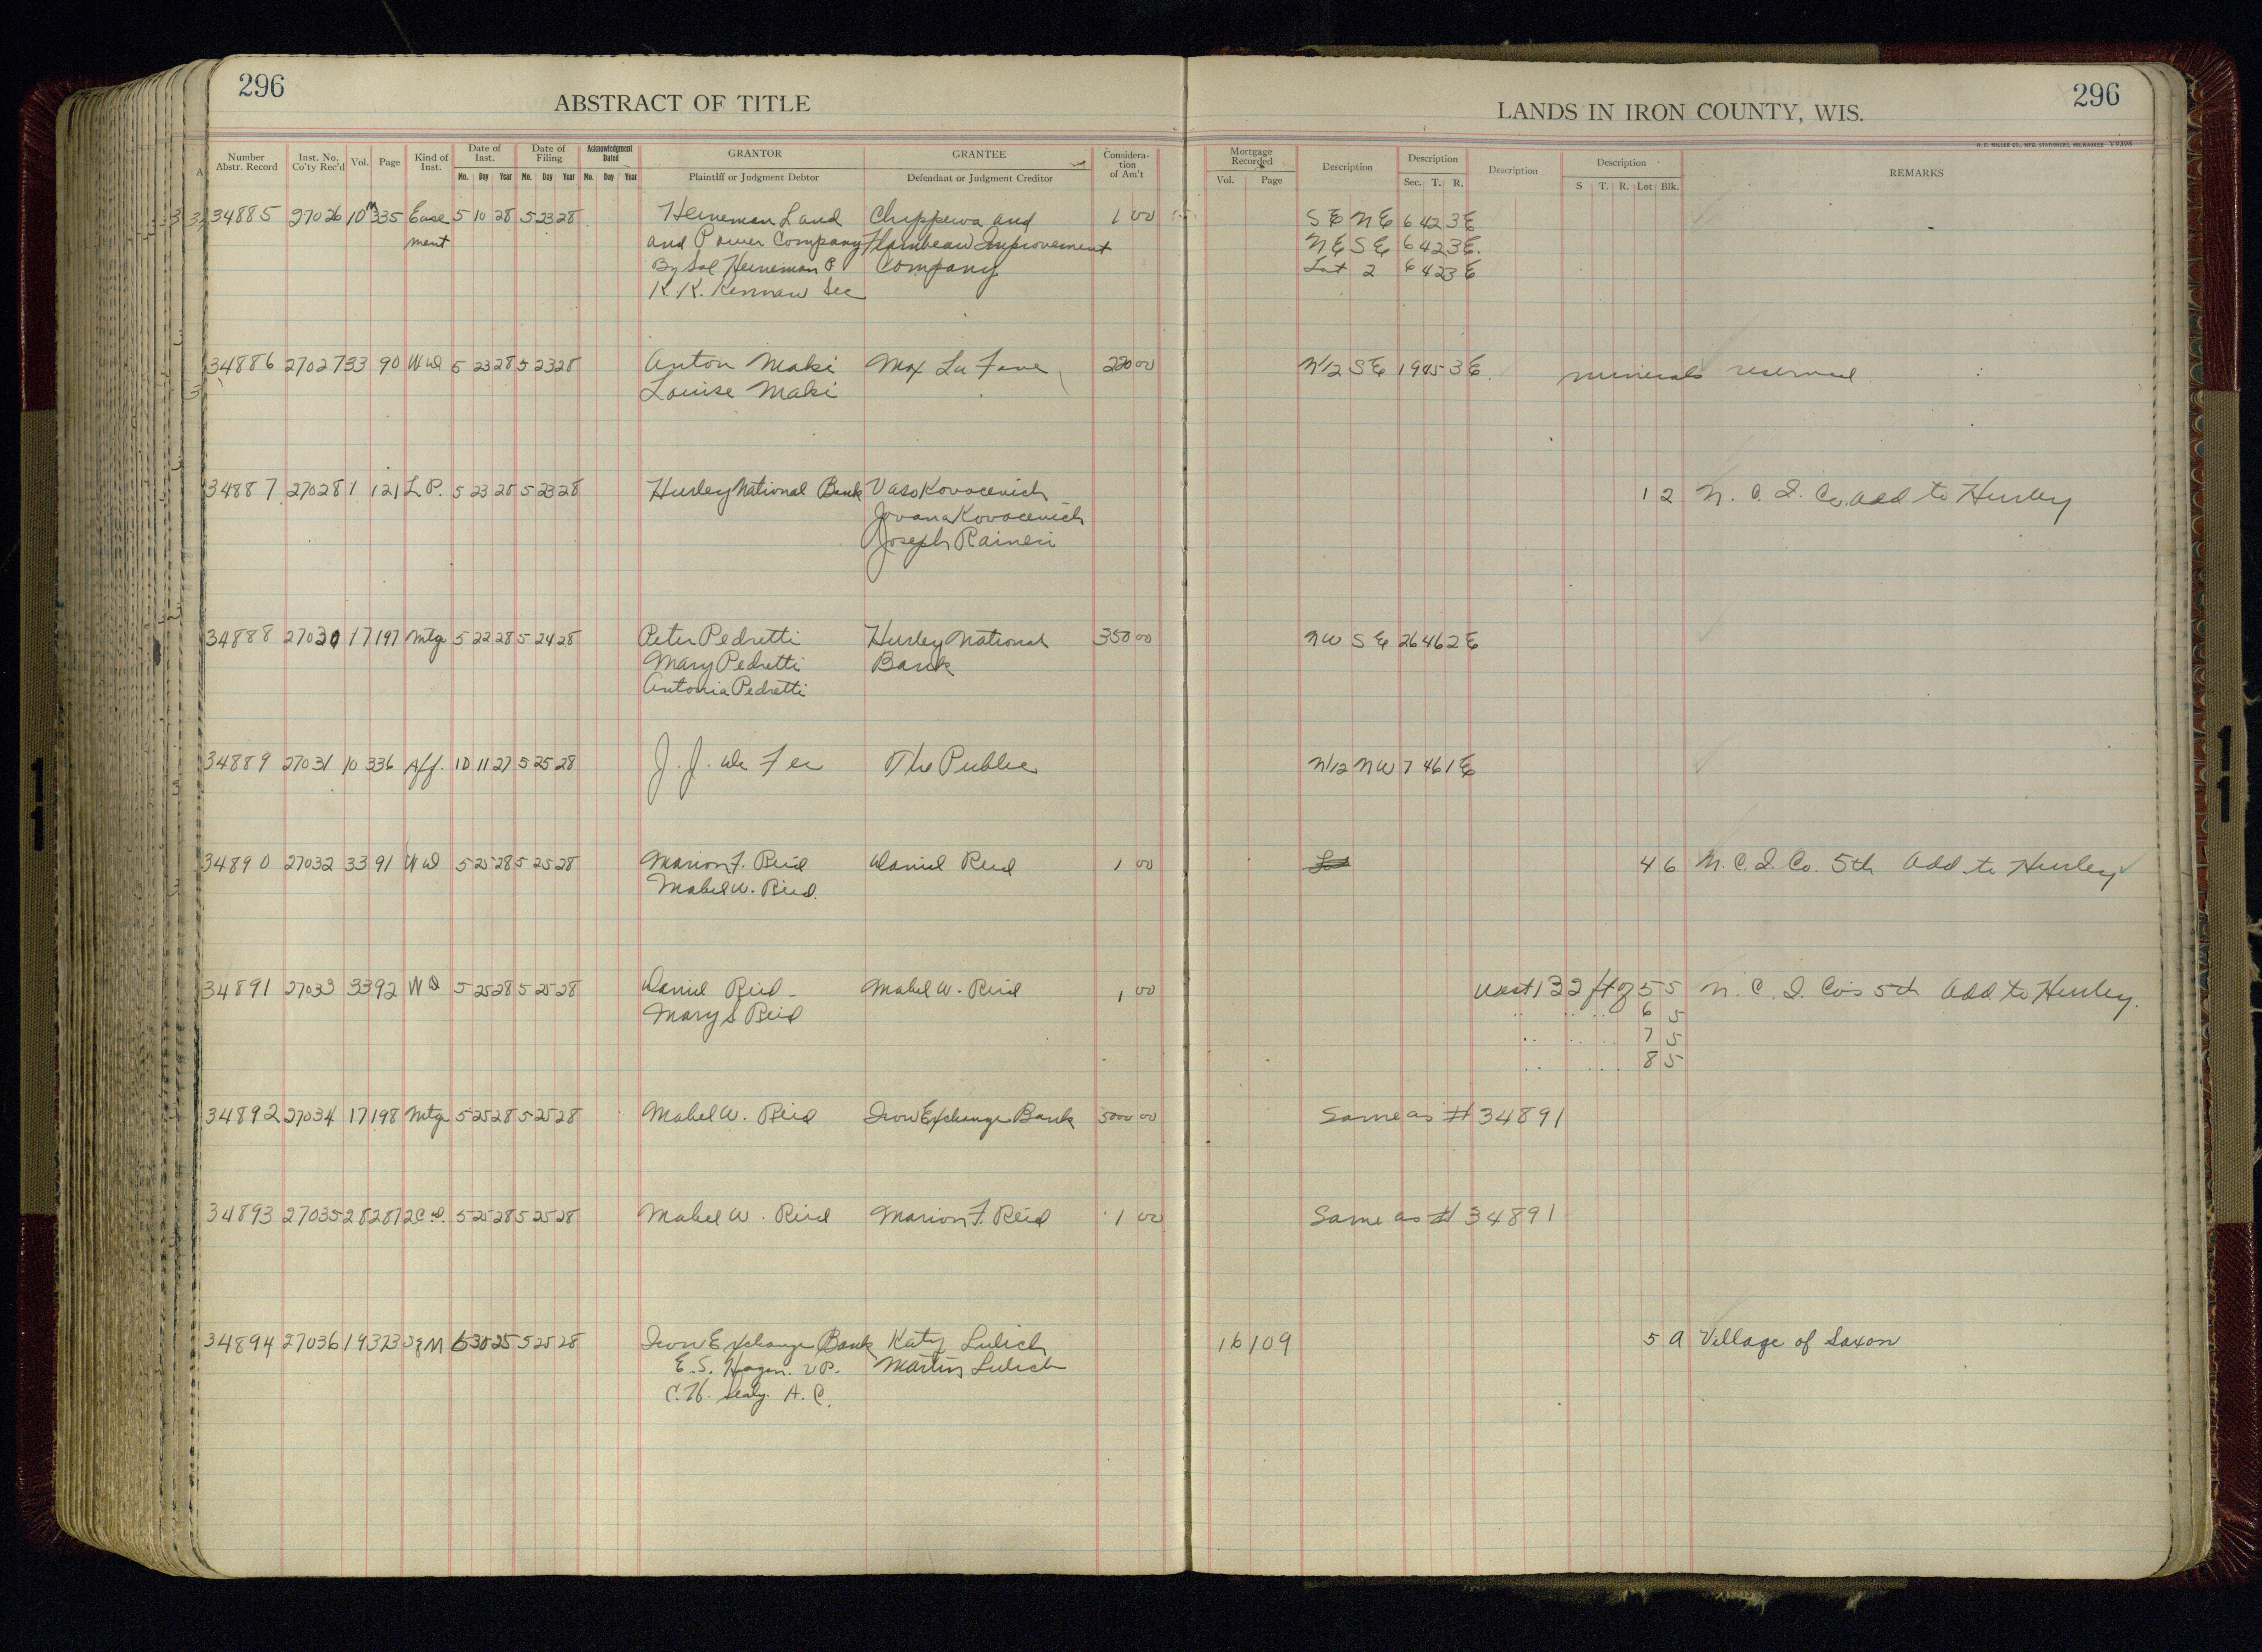 296
ABSTRACT OF TITLE
LANDS IN IRON COUNTY, WIS.
296
H. C. MILLER CO., MFG. STATIONERS, MILWAUKEE V9398
Number Abstr. Record Inst. No. Co'ty Rec'd Vol. Page Kind of Inst. Date of Inst. Mo. Day Year Date of Filing Mo. Day Year Acknowledgment Dated Mo. Day Year GRANTOR Plaintiff or Judgment Debtor GRANTEE Defendant or Judgment Creditor Considera-tion of Am't Mortgage Recorded Vol. Page Description Description Sec. T. R. Description Description S T. R. Lot Blk. REMARKS
34885 27026 10 M 335 Ease 5 10 28 5 23 28 Heineman Land Chippewa and 1 00 SE NE 6 42 3E
ment and Power Company Flambeau Improvement NE SE 6 42 3E.
By Sol Heineman P Company Lot 2 6 42 3E
K. K. Kennan Sec
34886 27027 33 90 WD 5 23 28 5 23 28 Anton Maki Max La Fave 220 00 N1/2 SE 19 45 3E. minerals reserved
Louise Maki
34887 27028 1 121 L P. 5 23 28 5 23 28 Hurley National Bank Vaso Kovocevich 1 2 N. C. I. Co. add to Hurley
Jovana Kovocevich
Joseph Raineri
34888 27030 17 197 Mtg 5 22 28 5 24 28 Peter Pedretti Hurley National 350 00 NW SE 26 46 2E
Mary Pedretti Bank
Antonia Pedretti
34889 27031 10 336 Aff. 10 11 27 5 25 28 J. J. De Fer The Public N1/2 NW 7 46 1E
34890 27032 33 91 WD 5 25 28 5 25 28 Marion F. Reid Daniel Reid 1 00 4 6 N. C. I. Co. 5th Add to Hurley
Mabel W. Reid.
34891 27033 33 92 WD 5 25 28 5 25 28 Daniel Reid Mabel W. Reid 1 00 West 132 ft of 5 5 N. C. I. Co's 5th Add to Hurley.
Mary S Reid .. .. .. 6 5
.. .. .. 7 5
.. .. .. 8 5
34892 27034 17 198 Mtg 5 25 28 5 25 28 Mabel W. Reid Iron Exchange Bank 5000 00 Same as # 34891
34893 27035 28 287 2C D. 5 25 28 5 25 28 Mabel W. Reid Marion F. Reid 1 00 Same as # 34891
34894 27036 19 323 S of M 6 30 25 5 25 28 Iron Exchange Bank Katy Lulich 16 109 5 A Village of Saxon
E. S. Hagen. V P. Martin Lulich
C. H. Sealy. A. C.